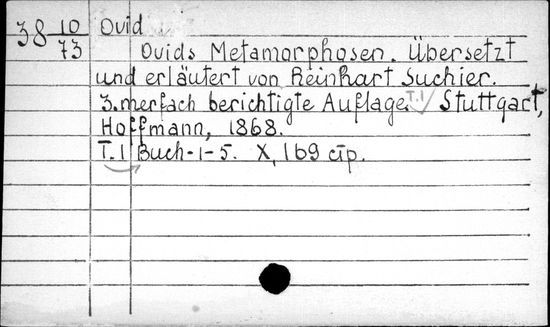 38 10/73 Ovid
Ovids Metamorphosen. Übersetzt
und erläutert von Reinhart Suchier.
3.merfach berichtigte Auflage T.1 Stuttgart,
Hoffmann, 1868.
T.1 Buch-1-5. X, 169 стр.